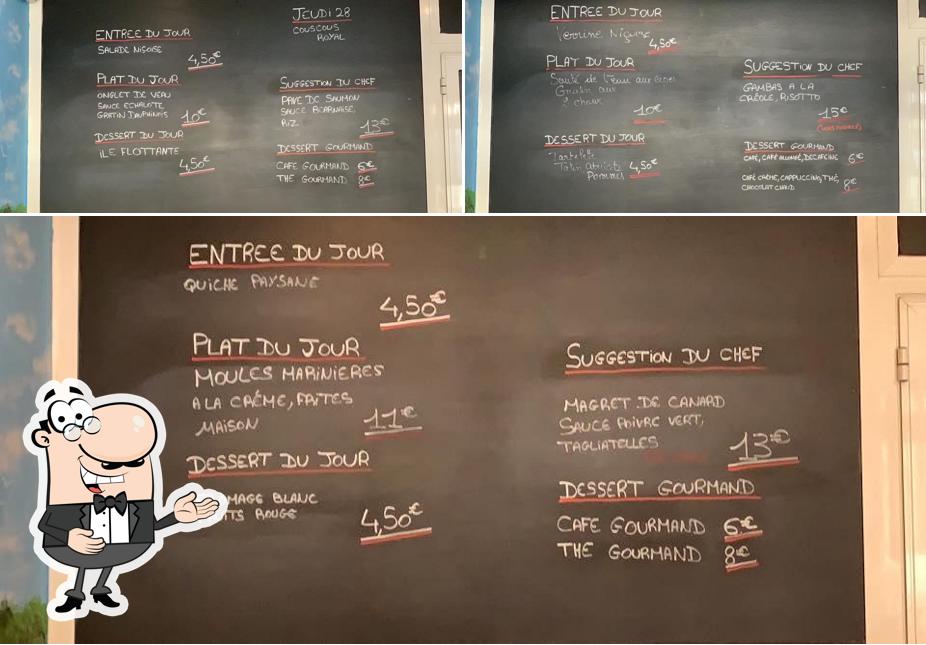 ENTREE DU JOUR
SALADE NIÇOISE
4,50€
PLAT DU JOUR
ONGLET DE VEAU
SAUCE ECHALOTE,
GRATIN DAUPHINOIS
10€
DESSERT DU JOUR
ILE FLOTTANTE
4,50€
JEUDI 28
COUSCOUS
ROYAL
SUGGESTION DU CHEF
PAVE DE SAUMON
SAUCE BEARNAISE,
RIZ
13€
DESSERT GOURMAND
CAFE GOURMAND 6€
THE GOURMAND 8€
ENTREE DU JOUR
Verrine Niçoise
4,50€
PLAT DU JOUR
Sauté de Veau aux
Gratin aux
2 choux
10€
DESSERT DU JOUR
Tartelette
Tatin
Pommes
4,50€
SUGGESTION DU CHEF
GAMBAS A LA
CRÉOLE, RISOTTO
15€
DESSERT GOURMAND
CAFE, CAFÉ ALLONGÉ, DECAFEINE
6€
CAFÉ CRÈME, CAPPUCCINO, THÉ,
CHOCOLAT CHAUD
8€
ENTREE DU JOUR
QUICHE PAYSANE
4,50€
PLAT DU JOUR
MOULES MARINIERES
A LA CRÉME, FAITES
MAISON
11€
DESSERT DU JOUR
MAGE BLANC
ITS ROUGE
4,50€
SUGGESTION DU CHEF
MAGRET DE CANARD
SAUCE POIVRE VERT,
TAGLIATELLES
13€
DESSERT GOURMAND
CAFE GOURMAND 6€
THE GOURMAND 8€